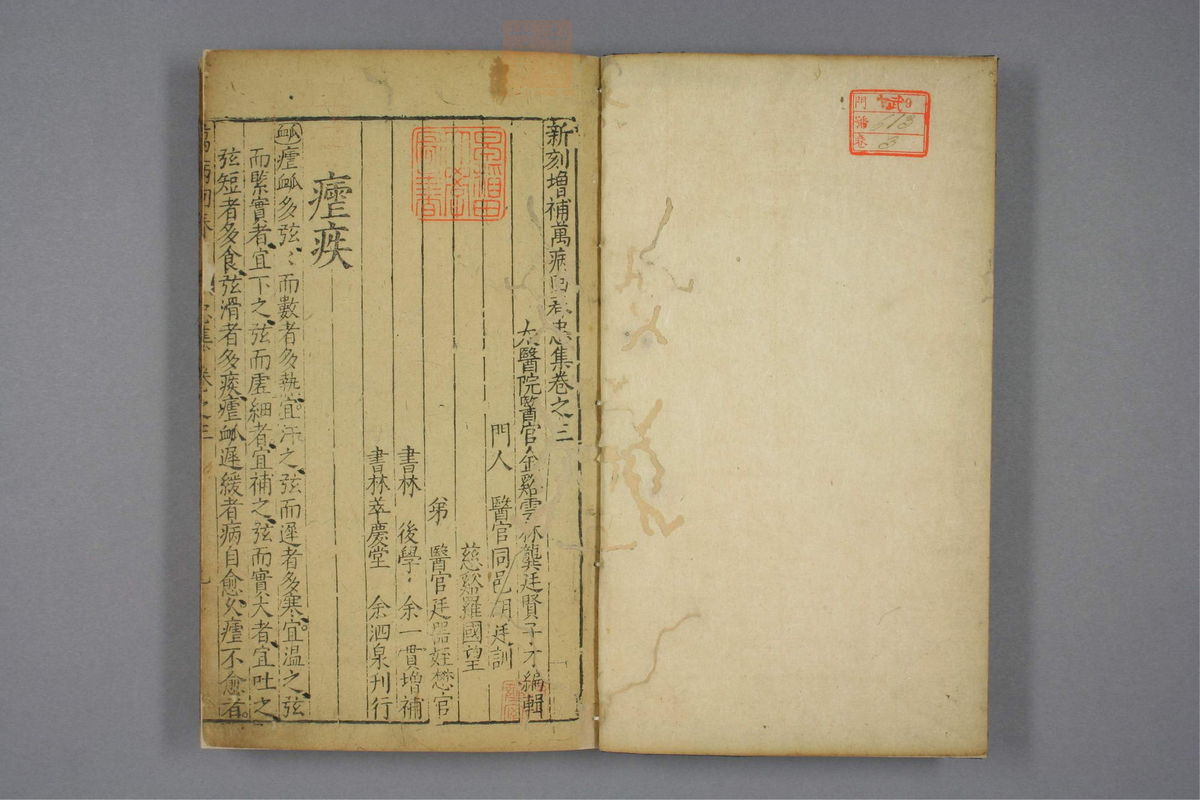 新刻增補萬病回春忠集卷之三
太醫院醫官金谿雲林龔廷賢子才編輯
門人 醫官同邑胡廷訓
慈谿羅國望
弟 醫官廷器姪懋官
書林 後學 余一貫增補
書林萃慶堂 余泗泉刊行
瘧疾
䘑瘧䘑多弦〻而數者多熱宜汗之弦而遲者多寒宜温之弦
而緊實者宜下之弦而虛細者宜補之弦而實大者宜吐之
弦短者多食弦滑者多痰瘧䘑遲緩者病自愈久瘧不愈者
萬病回春 忠集 卷之三
門 9
號 613
卷 3